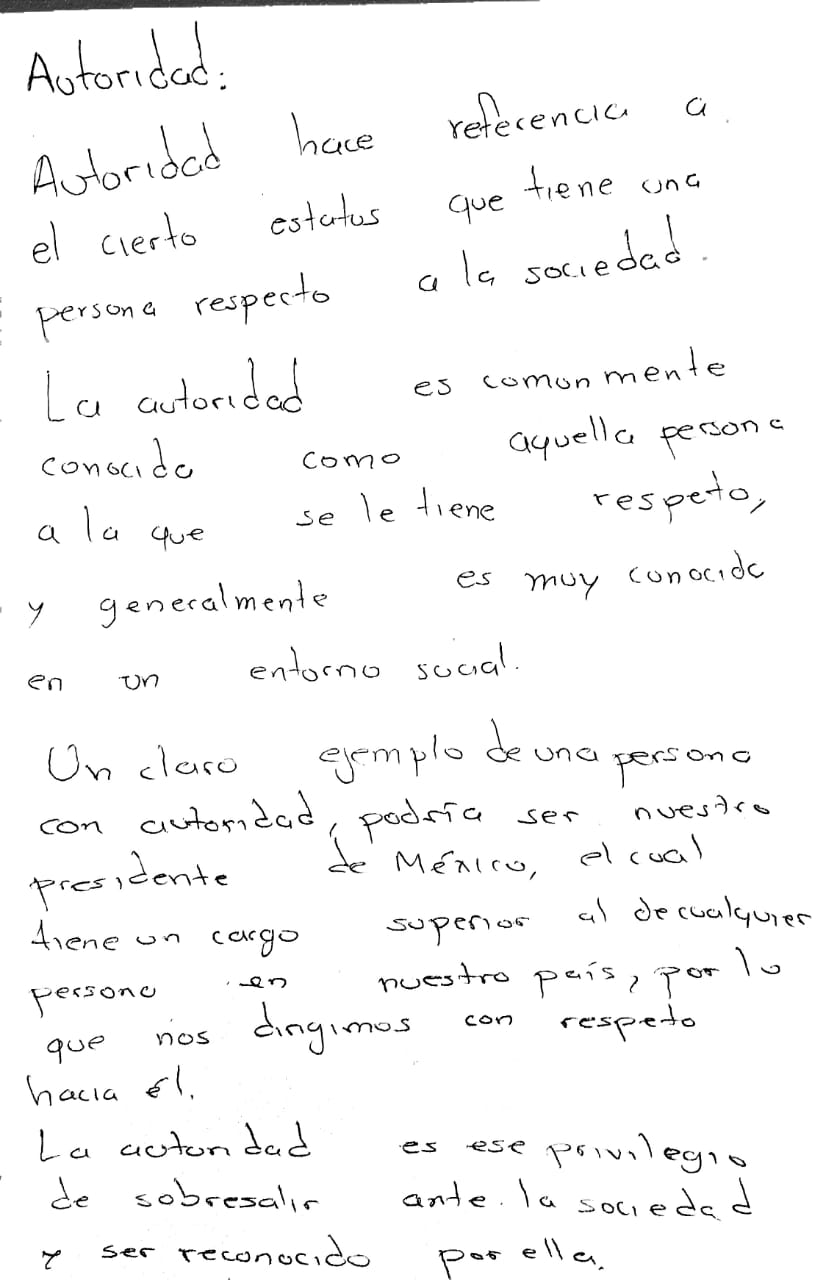 Autoridad:
Autoridad hace referencia a
el cierto estatus que tiene una
persona respecto a la sociedad.
La autoridad es comonmente
conocida como aquella persona
a la que se le tiene respeto,
y generalmente es muy conocida
en un entorno social.
Un claro ejemplo de una persona
con autoridad, podría ser nuestro
presidente de México, el cual
tiene un cargo superior al de cualquier
persona en nuestro país, por lo
que nos dirigimos con respeto
hacia él.
La autoridad es ese privilegio
de sobresalir ante la sociedad
y ser reconocido por ella.